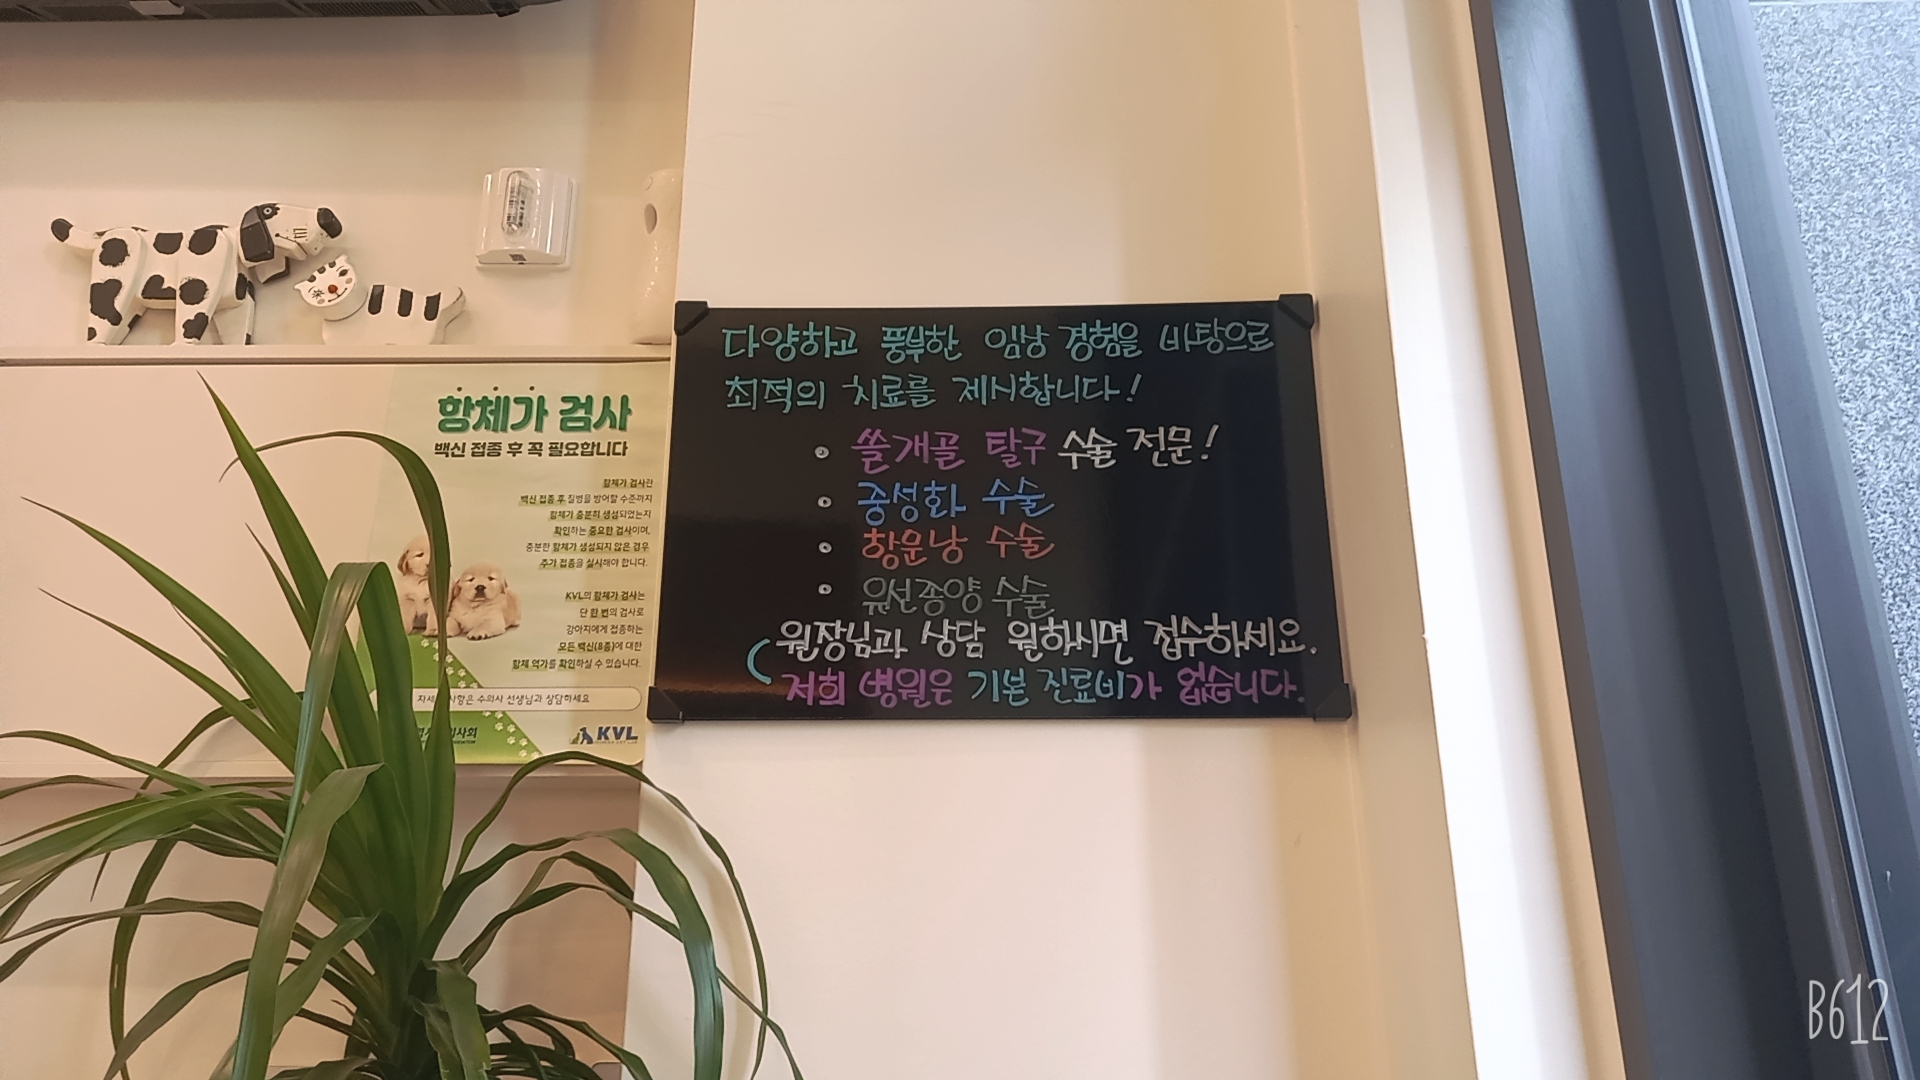 항체가 검사
백신 접종 후 꼭 필요합니다
항체가 검사란
백신 접종 후 질병을 방어할 수준까지
항체가 충분히 생성되었는지
확인하는 중요한 검사이며,
충분한 항체가 생성되지 않은 경우
추가 접종을 실시해야 합니다.
KVL의 항체가 검사는
단 한 번의 검사로
강아지에게 접종하는
모든 백신(8종)에 대한
항체 역가를 확인하실 수 있습니다.
수의사 선생님과 상담하세요
KVL
다양하고 풍부한 임상 경험을 바탕으로
최적의 치료를 제시합니다!
쓸개골 탈구 수술 전문!
중성화 수술
항문낭 수술
유선종양 수술
원장님과 상담 원하시면 접수하세요.
저희 병원은 기본 진료비가 없습니다.
B612